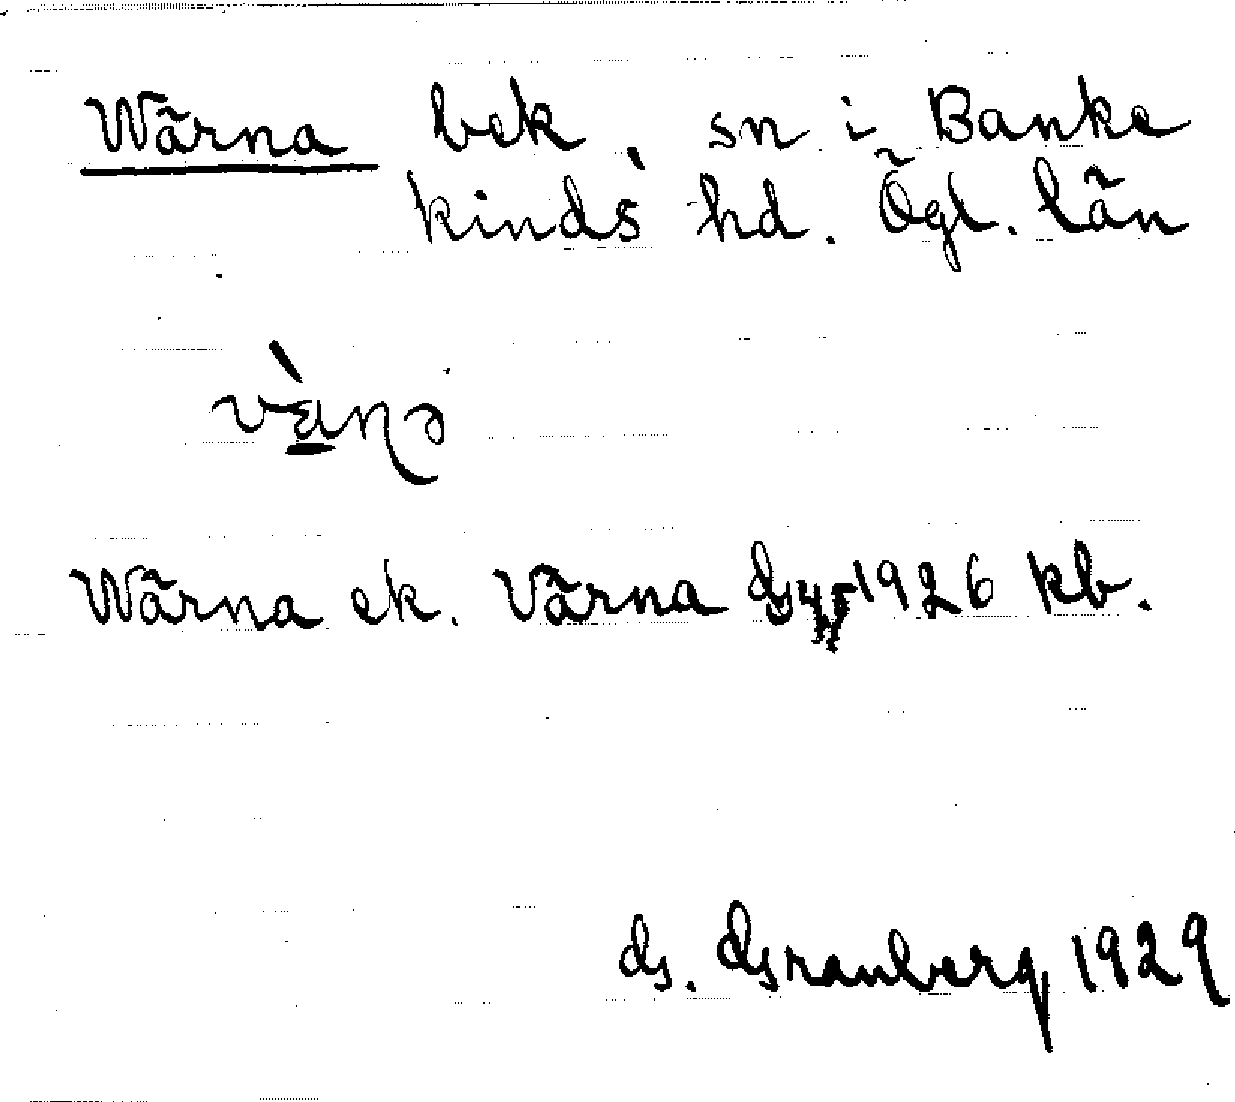 Wärna bek, sn i Banke
kinds hd. Ögl. län
Wärna ek. Värna 1926 kb.
G. Granberg 1929